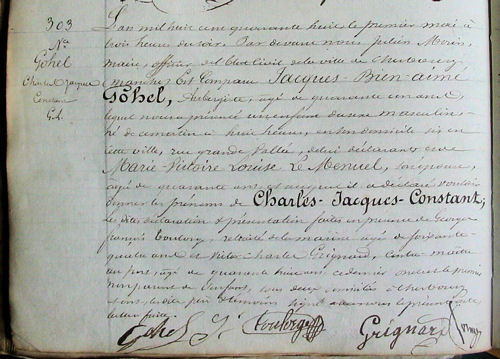 303
Nce
Gohel
Charles Jacques
Constant
L'an mil huit cent quarante huit le premier mai à
trois heures du soir. Par devant nous Julien Morin,
maire, officier de l'état Civil de la ville de Cherbourg
(manche) Est Comparu Jacques-Bien-aimé
Gohel, Aubergiste, agé de quarante un ans,
lequel nous a présenté un enfant du sexe masculin
né ce matin à huit heures, en son domicile sis en
cette ville, rue grande Vallée, de lui déclarant et de
Marie-Victoire Louise Le Menuel, son épouse,
agée de quarante ans et auquel il a déclaré vouloir
donner les prénoms de Charles-Jacques-Constant;
Les dites déclaration et présentation faites en présence de George
françois retraité de la marine agé de soixante
quatre ans et Victor Charles Grignard, Contre-maître
au port agé de quarante huit ans
de l'enfant, tous deux domiciliés à Cherbourg
et ont, les dits père et témoins signé avec nous le présent acte
lecture faite.
Gohel Grignard